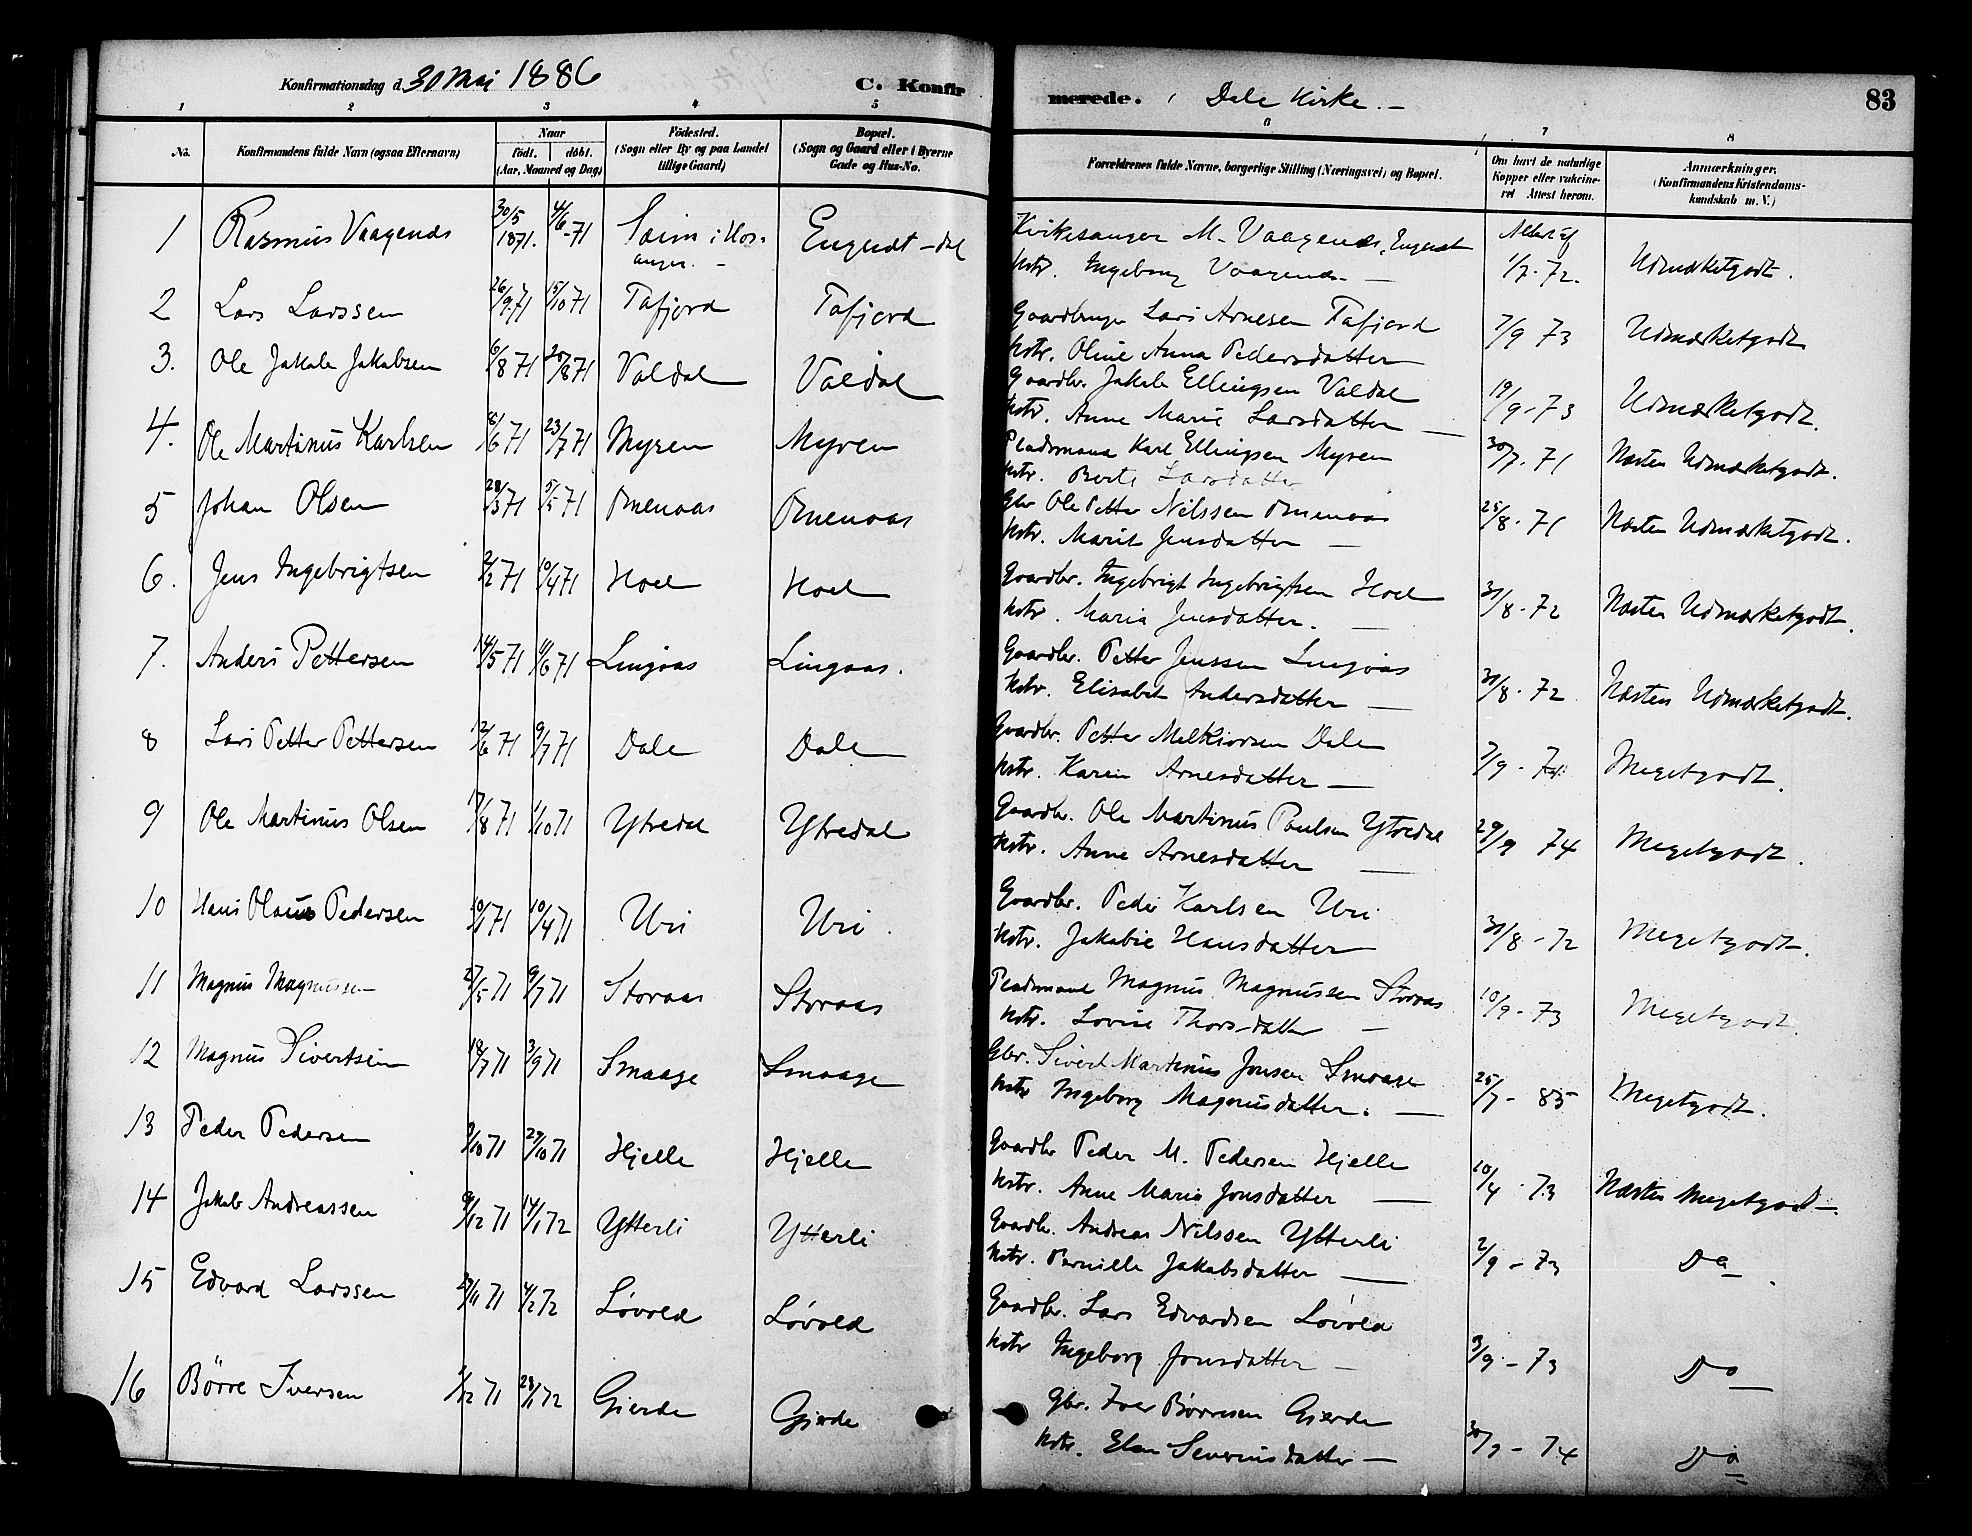 Konfirmationsdag d. 30 Mai 1886 C. Konfirmerede. i Dale Kirke.- 83
1 2 3 4 5 6 7 8
No. Konfirmandens fulde Navn (ogsaa Efternavn) Naar födt. döbt. (Aar, Maaned og Dag) Födested. (Sogn eller By og paa Landet tillige Gaard) Bopæl. (Sogn og Gaard eller i Byerne Gade og Hus-No. Forældrenes fulde Navne, borgerlige Stilling (Næringsvei) og Bopæl. Om havt de naturlige Kopper eller vakcineret Attest herom. Anmærkninger. (Konfirmandens Kristendomskundskab m. V.)
1 Rasmus Vaagenes 30/5 1871. 4/6-71 i Hosanger. - Engeset - dal Kirkesanger M. Vaagenes, Engeset Attest af 1/7-72. Udmærketgodt.
Kstr. Ingeborg Vaagenes -
2 Lars Larssen 26/9 71 15/10 71 Tafjord Tafjord Gaardbruger Lars Arnesen Tafjord 7/9 73 Udmærketgodt
Kstr. Oline Anna Pedersdatter
3. Ole Jakob Jakobsen 6/8 71 20/8 71 Valdal Valdal Gaardbr. Jakob Ellingsen Valdal 19/9-73 Udmærketgodt.
Kstr. Anne Marie Larsdatter -
4. Ole Martinus Karlsen 8/6 71 23/7 71 Myren Myren Pladsmand Karl Ellingsen Myren 30/7.71 Næsten Udmærketgodt.
Kstr. Berte Larsdatter
5 Johan Olsen 28/3 71 5/5 71 Omenaas Omenaas Gbr Ole Petter Nilssen Omenaas 25/8.71 Næsten Udmærketgodt.
Kstr. Marit Jensdatter -
6. Jens Ingebrigtsen 2/2 71 10/4 71 Hoel Hoel Gaardbr. Ingebrigt Ingebrigtsen Hoel 31/8.72 Næsten Udmærketgodt.
Kstr. Maria Jensdatter. -
7. Anders Pettersen 14/5 71 11/6 71 Lingaas Lingaas. Gaardbr. Petter Jenssen Lingaas 31/8.72 Næsten Udmærketgodt.
Kstr. Elisabet Andersdatter -
8 Lars Petter Pettersen 12/6 71 9/7 71 Dale Dale Gaardbr. Petter Melkiorsen Dale 7/9 - 74. Megetgodt.
Kstr. Karen Arnesdatter -
9 Ole Martinus Olsen 17/8 71 1/10 71 Ytredal Ytredal Gaardbr. Ole Martinus Paulsen Ytredal 29/9 74 Megetgodt.
Kstr. Anne Arnesdatter -
10 Hans Olaus Pedersen 10/1 71 10/4 71 Uri Uri. Gaardbr. Peder Karlsen Uri 30/8-72 Megetgodt.
Kstr. Jakobie Hansdatter
11 Magnus Magnussen 27/5 71 9/7 71 Storaas Storaas Pladsmand Magnus Magnussen Storaas 10/9-73 Megetgodt.
Kstr. Lovise Thorsdatter -
12 Magnus Sivertsen 18/7 71 3/9 71 Smaage Smaage Gbr. Sivert Martinus Jonsen Smaage 25/7- 85 Megetgodt.
Kstr Ingeborg Magnusdatter. -
13 Peder Pedersen 9/10 71 29/10 71 Hjelle Hjelle Gaardbr Peder M. Pedersen Hjelle 20/4.73 Næsten Megetgodt-.
Kstr. Anne Maria Jonsdatter -
14 Jakob Andreassen 9/12 71 14/1 72 Ytterli Ytterli Gaardbr. Andreas Nilssen Ytterli 2/9 - 73 Do.
Kstr. Pernille Jakobsdatter -
15 Edvard Larssen 23/11 71 4/2 72 Løvold Løvold Gaardbr. Lars Edvardsen Løvold 3/9 - 73 Do
Kstr Ingeborg Jonsdatter -
16 Børre Iversen 1/12 71 28/1 72 Gierde Gjerde Gbr. Iver Børresen Gierde 30/9 - 74 Do
Kstr. Elen Severinsdatter -